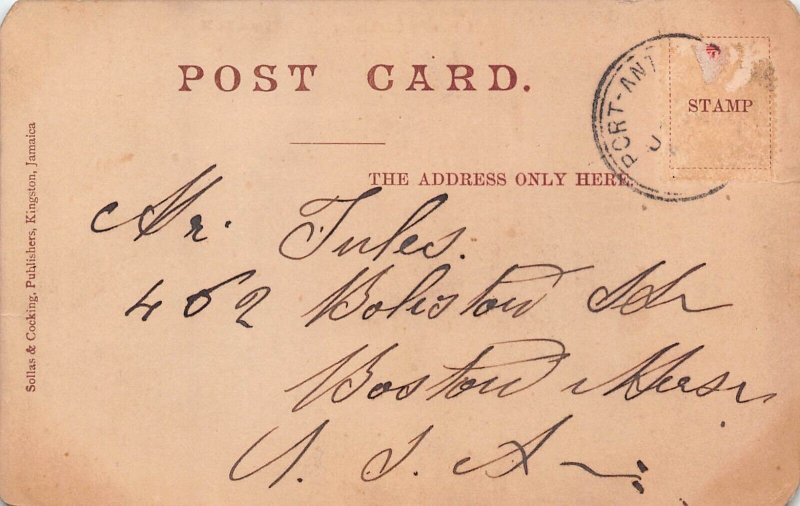 POST CARD.
PORT-ANT
STAMP
THE ADDRESS ONLY HERE
Sollas & Cocking, Publishers, Kingston, Jamaica
Mr. Jules.
462 Bolistow
Boston Mass
U. S. A